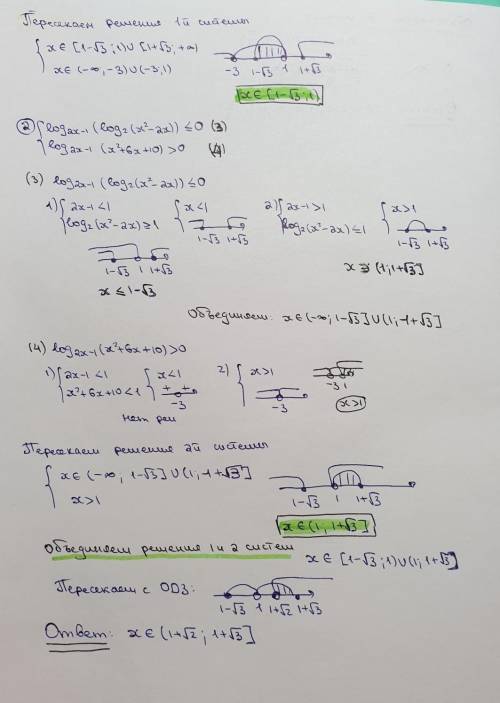 Пересекаем решения 1й системы
{ x∈[1-√3;1)∪[1+√3;+∞)
x∈(-∞,-3)∪(-3;1)
-3 1-√3 1 1+√3
x∈[1-√3;1)
② { log2x-1 (log2(x²-2x)) ≤0 (3)
log2x-1 (x²+6x+10)>0 (4)
(3) log2x-1 (log2(x²-2x)) ≤0
1) { 2x-1<1 { x<1 2) { 2x-1>1 { x>1
log2(x²-2x)≥1 1-√3 1+√3 log2(x²-2x)≤1 1-√3 1+√3
1-√3 1 1+√3
x≤1-√3 x∋(1;1+√3]
Объединяем: x∈(-∞;1-√3]∪(1;-1+√3]
(4) log2x-1 (x²+6x+10)>0
1) { 2x-1<1 { x<1 2) { x>1
x²+6x+10<1 + + -3 -3 -3 1
нет реш x>1
Пересекаем решения 2й системы
{ x∈(-∞; 1-√3]∪(1;-1+√3]
x>1
1-√3 1 1+√3
x∈(1,1+√3]
Объединяем решения 1 и 2 систем x∈[1-√3;1)∪(1;1+√3]
Пересекаем с ОДЗ: 1-√3 1 1+√2 1+√3
Ответ: x∈(1+√2; 1+√3]